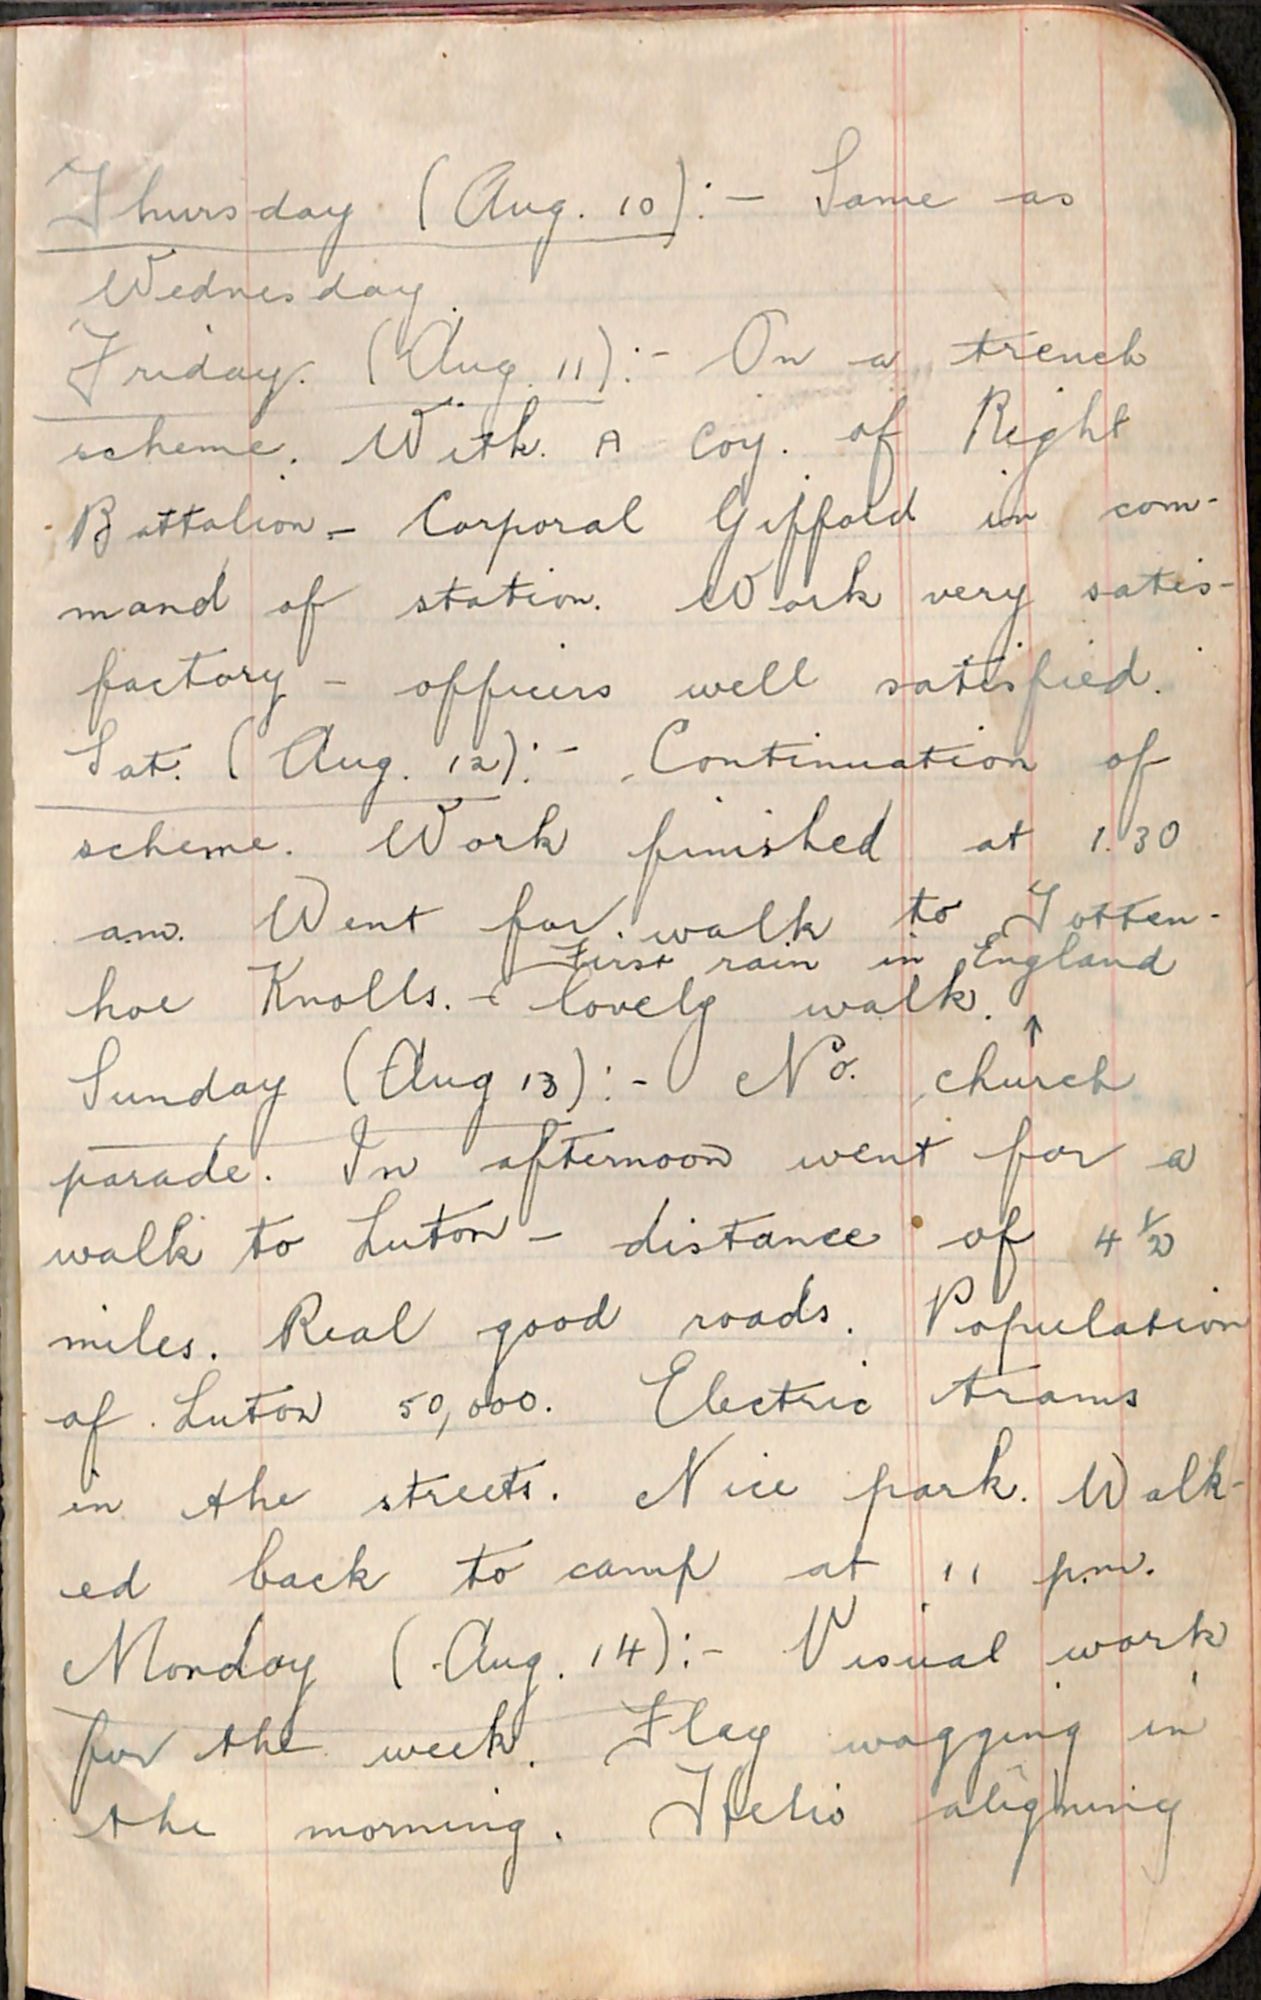 Thursday (Aug. 10):- Same as
Wednesday.
Friday. (Aug. 11):- On a trench
scheme. With A coy. of Right
Battalion - Corporal Gifford in com-
mand of station. Work very satis-
factory - officers well satisfied.
Sat. (Aug. 12):- Continuation of
scheme. Work finished at 1.30
a.m. Went for walk to Totten-
First rain in England
hoe Knolls. - lovely walk. ↑
Sunday (Aug 13):- No. church
parade. In afternoon went for a
walk to Luton - distance of 4 1/2
miles. Real good roads. Population
of Luton 50,000. Electric trams
in the streets. Nice park. Walk-
ed back to camp at 11 p.m.
Monday (Aug. 14):- Visual work
for the week. Flag wagging in
the morning. Helio aligning